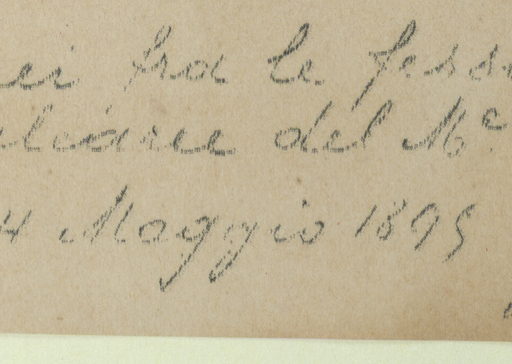 ei fra le fess
calcaree del Mᵉ.
4 Maggio 1895